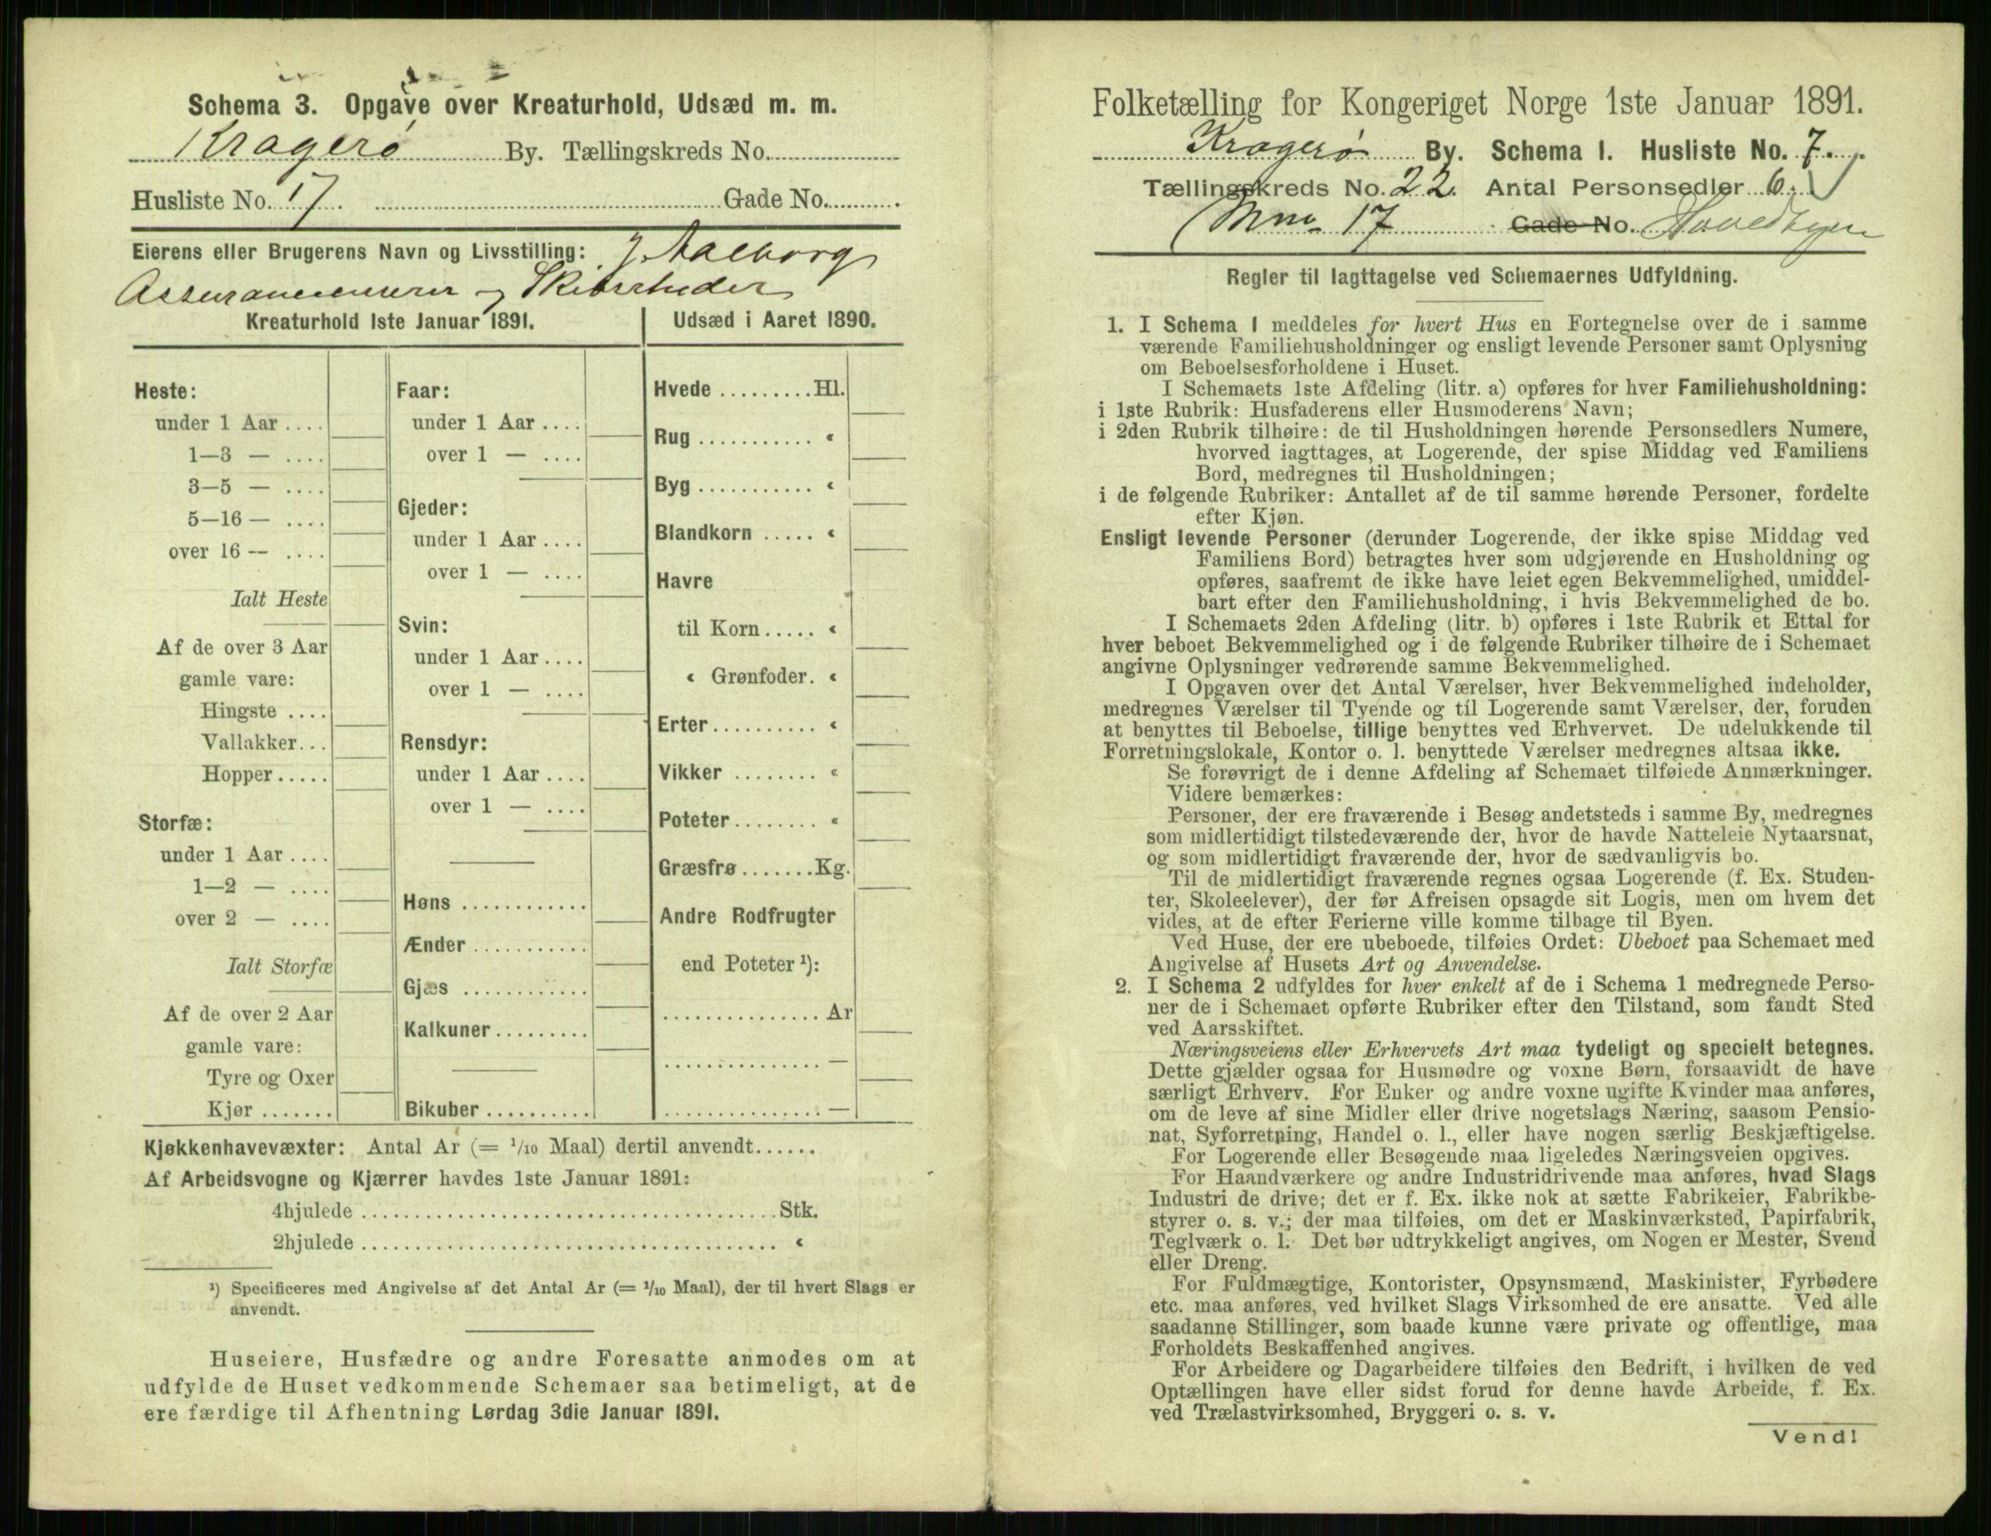 Schema 3. Opgave over Kreaturhold, Udsæd m. m.
Kragerø By. Tællingskreds No.
Husliste No. 17. Gade No.
Eierens eller Brugerens Navn og Livsstilling: J. Aalborg
og Skibsrheder
Kreaturhold 1ste Januar 1891.
Heste:
under 1 Aar ....
1—3 — ....
3—5 — ....
5—16 — ....
over 16 — ....
Ialt Heste
Af de over 3 Aar
gamle vare:
Hingste ....
Vallakker...
Hopper.....
Storfæ:
under 1 Aar ....
1—2 — ....
over 2 — ....
Ialt Storfæ
Af de over 2 Aar
gamle vare:
Tyre og Oxer
Kjør.......
Faar:
under 1 Aar ....
over 1 — ....
Gjeder:
under 1 Aar ....
over 1 — ....
Svin:
under 1 Aar ....
over 1 — ....
Rensdyr:
under 1 Aar ....
over 1 — ....
Høns ............
Ænder ...........
Gjæs ............
Kalkuner.........
Bikuber..........
Udsæd i Aaret 1890.
Hvede .........Hl.
Rug ........... «
Byg ........... «
Blandkorn ..... «
Havre
til Korn..... «
« Grønfoder. «
Erter.......... «
Vikker ........ «
Poteter........ «
Græsfrø.......Kg.
Andre Rodfrugter
end Poteter ¹):
............... Ar
............... —
............... —
Kjøkkenhavevæxter: Antal Ar (= 1/10 Maal) dertil anvendt......
Af Arbeidsvogne og Kjærrer havdes 1ste Januar 1891:
4hjulede ....................................... Stk.
2hjulede ....................................... «
¹) Specificeres med Angivelse af det Antal Ar (= 1/10 Maal), der til hvert Slags er
anvendt.
Huseiere, Husfædre og andre Foresatte anmodes om at
udfylde de Huset vedkommende Schemaer saa betimeligt, at de
ere færdige til Afhentning Lørdag 3die Januar 1891.
Folketælling for Kongeriget Norge 1ste Januar 1891.
Kragerø By. Schema I. Husliste No. 7.
Tællingskreds No. 22. Antal Personsedler 6.
17 Gade No.
Regler til Iagttagelse ved Schemaernes Udfyldning.
1. I Schema 1 meddeles for hvert Hus en Fortegnelse over de i samme
værende Familiehusholdninger og ensligt levende Personer samt Oplysning
om Beboelsesforholdene i Huset.
I Schemaets 1ste Afdeling (litr. a) opføres for hver Familiehusholdning:
i 1ste Rubrik: Husfaderens eller Husmoderens Navn;
i 2den Rubrik tilhøire: de til Husholdningen hørende Personsedlers Numere,
hvorved iagttages, at Logerende, der spise Middag ved Familiens
Bord, medregnes til Husholdningen;
i de følgende Rubriker: Antallet af de til samme hørende Personer, fordelte
efter Kjøn.
Ensligt levende Personer (derunder Logerende, der ikke spise Middag ved
Familiens Bord) betragtes hver som udgjørende en Husholdning og
opføres, saafremt de ikke have leiet egen Bekvemmelighed, umiddel-
bart efter den Familiehusholdning, i hvis Bekvemmelighed de bo.
I Schemaets 2den Afdeling (litr. b) opføres i 1ste Rubrik et Ettal for
hver beboet Bekvemmelighed og i de følgende Rubriker tilhøire de i Schemaet
angivne Oplysninger vedrørende samme Bekvemmelighed.
I Opgaven over det Antal Værelser, hver Bekvemmelighed indeholder,
medregnes Værelser til Tyende og til Logerende samt Værelser, der, foruden
at benyttes til Beboelse, tillige benyttes ved Erhvervet. De udelukkende til
Forretningslokale, Kontor o. l. benyttede Værelser medregnes altsaa ikke.
Se forøvrigt de i denne Afdeling af Schemaet tilføiede Anmærkninger.
Videre bemærkes:
Personer, der ere fraværende i Besøg andetsteds i samme By, medregnes
som midlertidigt tilstedeværende der, hvor de havde Natteleie Nytaarsnat,
og som midlertidigt fraværende der, hvor de sædvanligvis bo.
Til de midlertidigt fraværende regnes ogsaa Logerende (f. Ex. Studen-
ter, Skoleelever), der før Afreisen opsagde sit Logis, men om hvem det
vides, at de efter Ferierne ville komme tilbage til Byen.
Ved Huse, der ere ubeboede, tilføies Ordet: Ubeboet paa Schemaet med
Angivelse af Husets Art og Anvendelse.
2. I Schema 2 udfyldes for hver enkelt af de i Schema 1 medregnede Perso-
ner de i Schemaet opførte Rubriker efter den Tilstand, som fandt Sted
ved Aarsskiftet.
Næringsveiens eller Erhvervets Art maa tydeligt og specielt betegnes.
Dette gjælder ogsaa for Husmødre og voxne Børn, forsaavidt de have
særligt Erhverv. For Enker og andre voxne ugifte Kvinder maa anføres,
om de leve af sine Midler eller drive nogetslags Næring, saasom Pensio-
nat, Syforretning, Handel o. l., eller have nogen særlig Beskjæftigelse.
For Logerende eller Besøgende maa ligeledes Næringsveien opgives.
For Haandværkere og andre Industridrivende maa anføres, hvad Slags
Industri de drive; det er f. Ex. ikke nok at sætte Fabrikeier, Fabrikbe-
styrer o. s. v.; der maa tilføies, om det er Maskinværksted, Papirfabrik,
Teglværk o. l. Det bør udtrykkeligt angives, om Nogen er Mester, Svend
eller Dreng.
For Fuldmægtige, Kontorister, Opsynsmænd, Maskinister, Fyrbødere
etc. maa anføres, ved hvilket Slags Virksomhed de ere ansatte. Ved alle
saadanne Stillinger, som baade kunne være private og offentlige, maa
Forholdets Beskaffenhed angives.
For Arbeidere og Dagarbeidere tilføies den Bedrift, i hvilken de ved
Optællingen have eller sidst forud for denne havde Arbeide, f. Ex.
ved Trælastvirksomhed, Bryggeri o. s. v.
Vend!